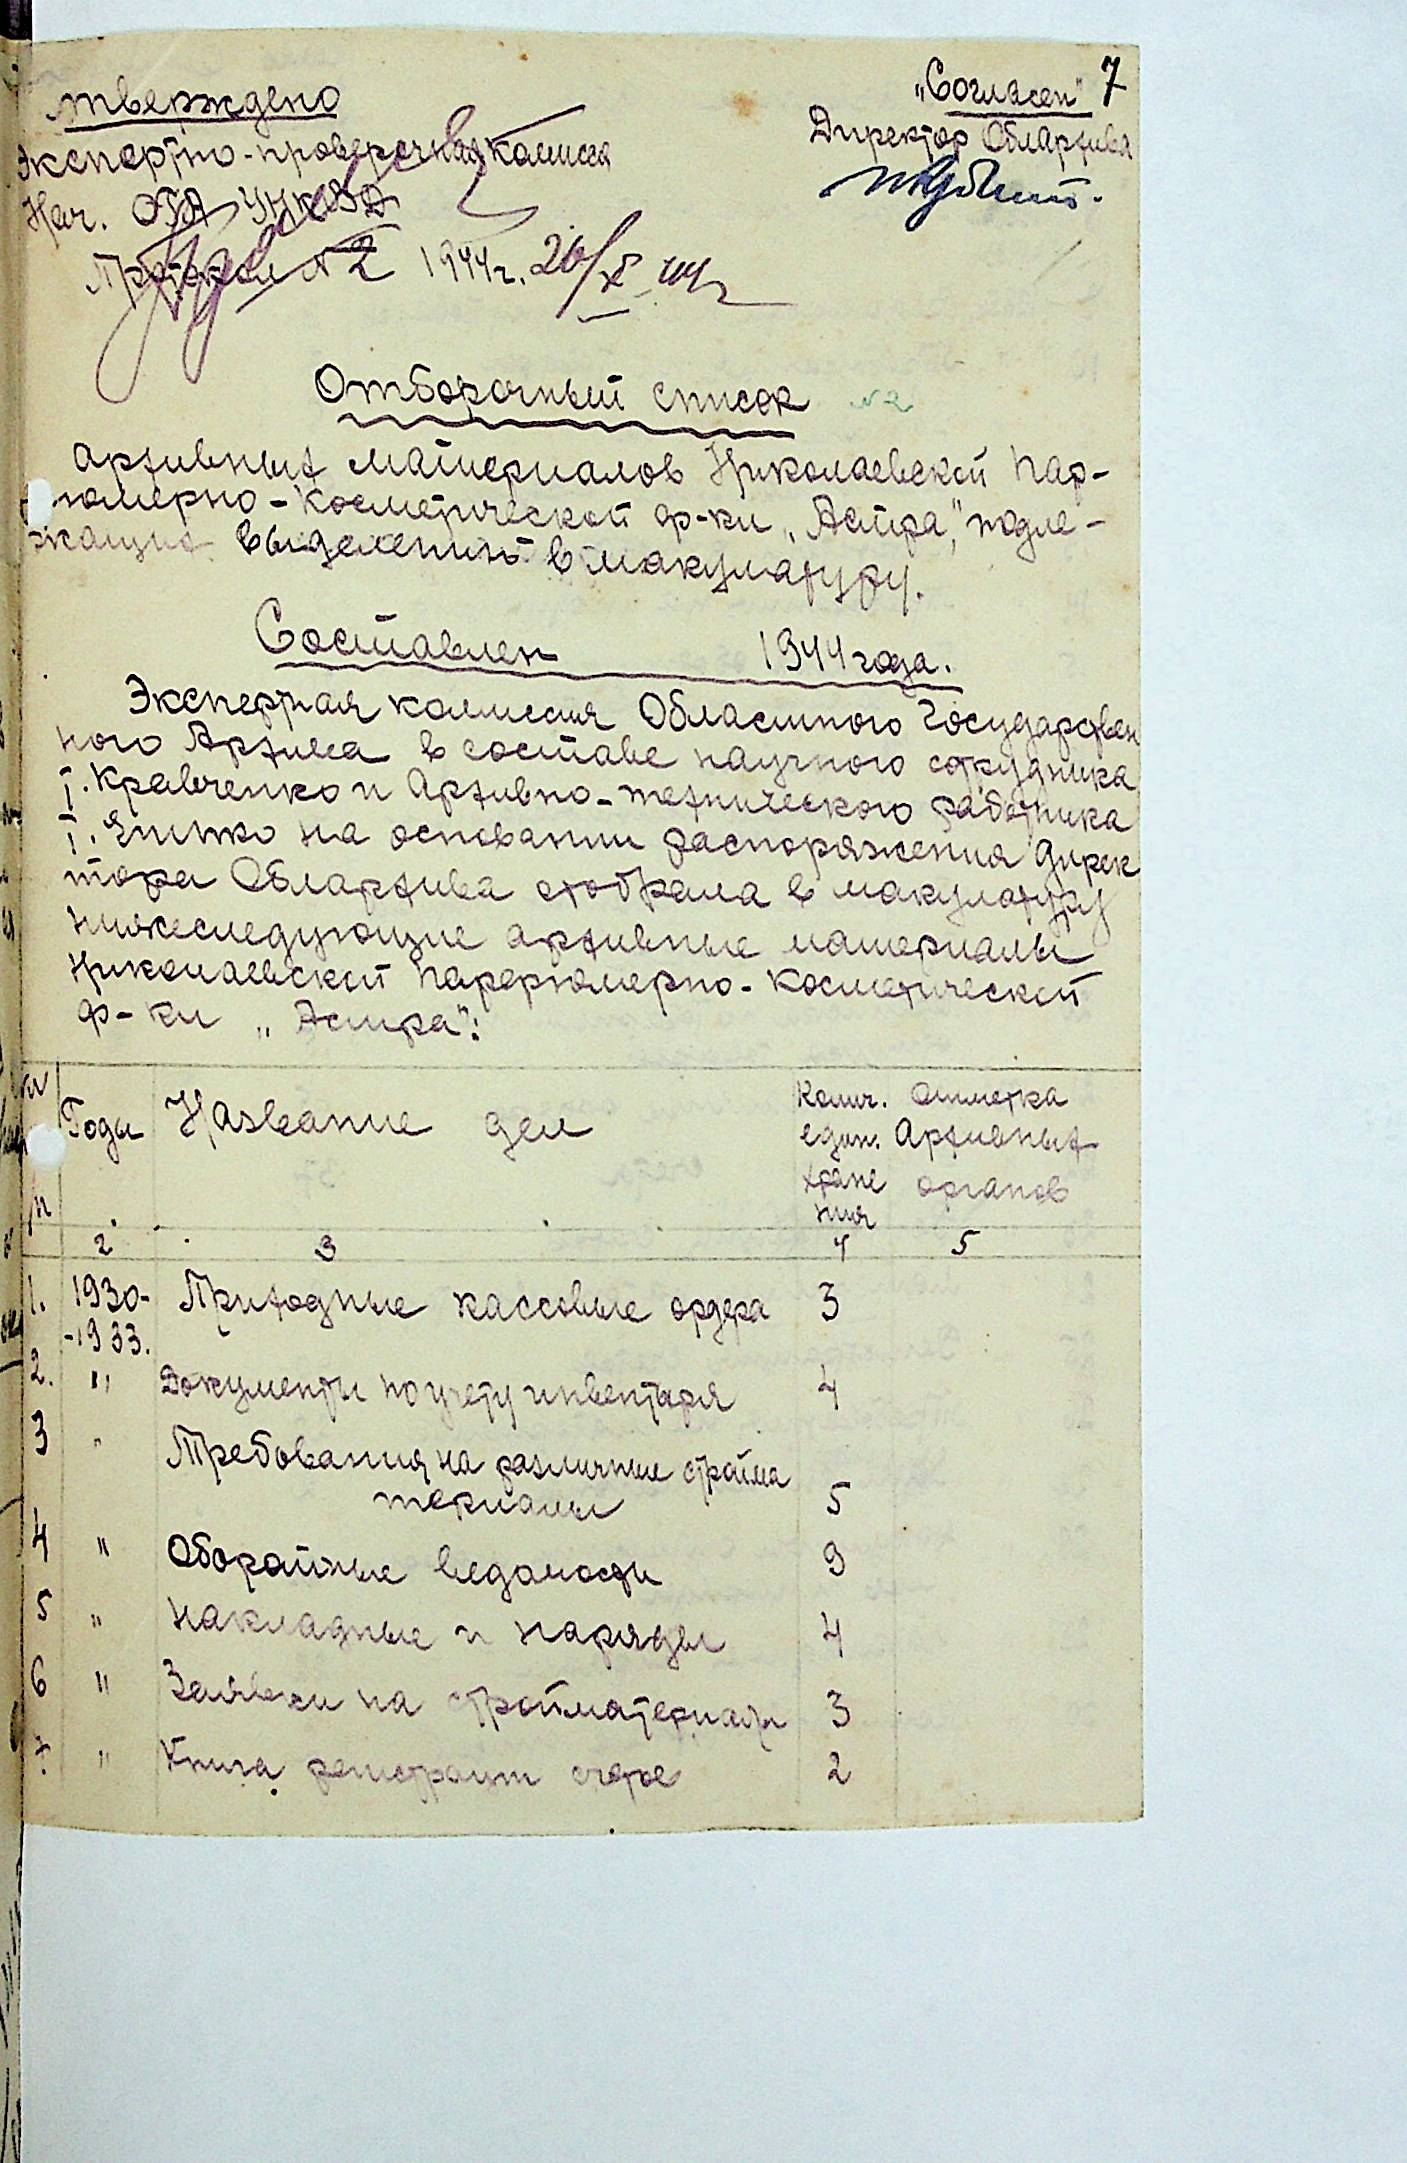 тверждено
Экспертно-проверочная комиссия
Нач. ОГА УНКВД
Протокол №2 1944г. 26/XI 44г
„Согласен" 7
Директор Облархива
Отборочный список №2
Архивных материалов Николаевской пар-
юмерно-косметической ф-ки „Астра", подле-
жащих выделению в макулатуру.
Составлен 1944 года.
Экспертная комиссия Областного Государствен
ного Архива в составе научного сотрудника
т. Кравченко и Архивно-технического работника
т. на основании распоряжения дирек
тора Облархива отобрала в макулатуру
нижеследующие архивные материалы
Николаевской парфюмерно-косметической
ф-ки „Астра":
Годы Название дел Колич. един. хране ния Отметка Архивных органов
2 3 4 5
1. 1930- Приходные кассовые ордера 3
-1933.
2. " Документы по учету инвентаря 4
3 " Требования на различные стройма
териалы 5
4 " Оборотные ведомости 9
5 " Накладные и наряды 4
6 " Заявки на стройматериалы 3
7. " Книга регистрации счетов 2